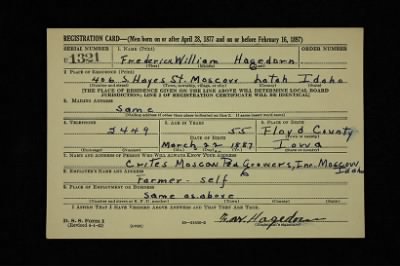 REGISTRATION CARD—(Men born on or after April 28, 1877 and on or before February 16, 1897)
SERIAL NUMBER 1. NAME (Print) ORDER NUMBER
U 1321 Frederick William Hagedorn
2. PLACE OF RESIDENCE (Print)
406 S. Hayes St. Moscow Latah Idaho
(Number and street) (Town, township, village, or city) (County) (State)
[THE PLACE OF RESIDENCE GIVEN ON THE LINE ABOVE WILL DETERMINE LOCAL BOARD
JURISDICTION; LINE 2 OF REGISTRATION CERTIFICATE WILL BE IDENTICAL]
3. MAILING ADDRESS
Same
(Mailing address if other than place indicated on line 2. If same insert word same)
4. TELEPHONE 5. AGE IN YEARS 6. PLACE OF BIRTH
2449 55 Floyd County
DATE OF BIRTH
March 22 1887 Iowa
(Mo.) (Day) (Yr.)
7. NAME AND ADDRESS OF PERSON WHO WILL ALWAYS KNOW YOUR ADDRESS
Crites Moscow Growers, Inc. Moscow, Idaho
8. EMPLOYER'S NAME AND ADDRESS
Farmer - self
9. PLACE OF EMPLOYMENT OR BUSINESS
Same as above
(Number and street or R. F. D. number) (Town) (County) (State)
I AFFIRM THAT I HAVE VERIFIED ABOVE ANSWERS AND THAT THEY ARE TRUE.
D. S. S. Form 1
(Revised 4-1-42) (over) Hagedorn
(Registrant's signature)